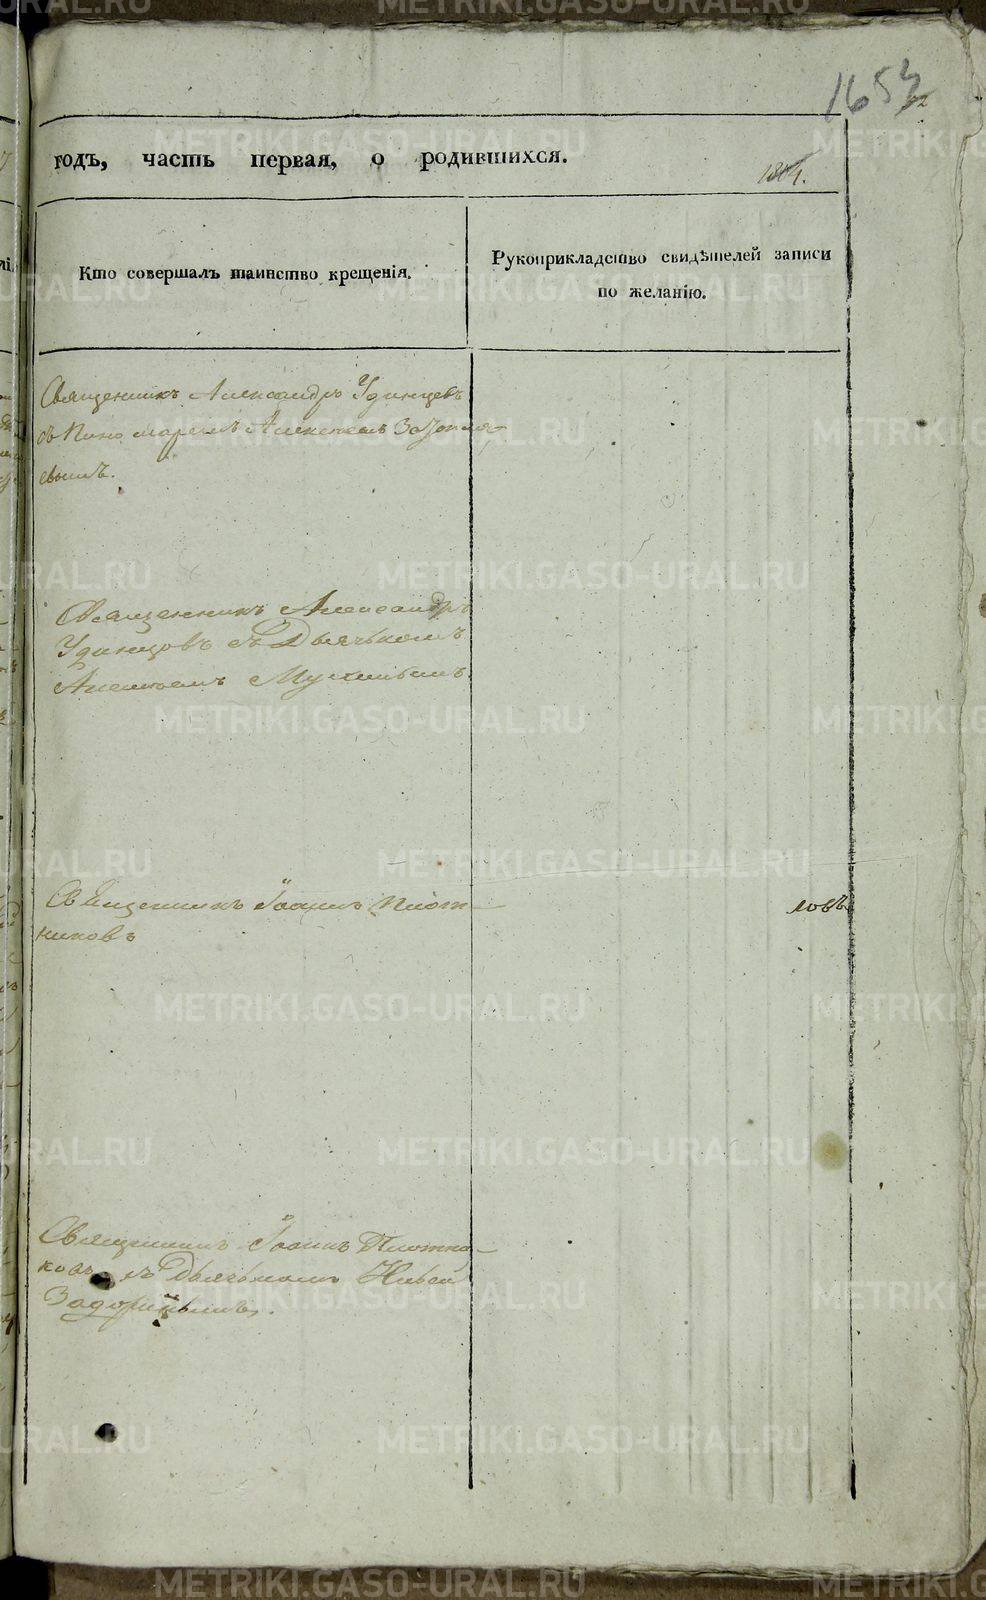 1653
годъ, часть первая, о родившихся.
1804.
Кто совершалъ таинство крещенія.
Рукоприкладство свидѣтелей записи
по желанію.
Священникъ Александръ Удинцевъ
съ Поно маремъ Алексеемъ
евымъ.
Священникъ Александръ
Удинцовъ съ Дьячькомъ
Алексеемъ
Священникъ Іоаннъ Плот-
никовъ
ловъ
Священникъ Іоаннъ Плотни-
ковъ съ Дьячькомъ
Задоринымъ.
METRIKI.GASO-URAL.RU